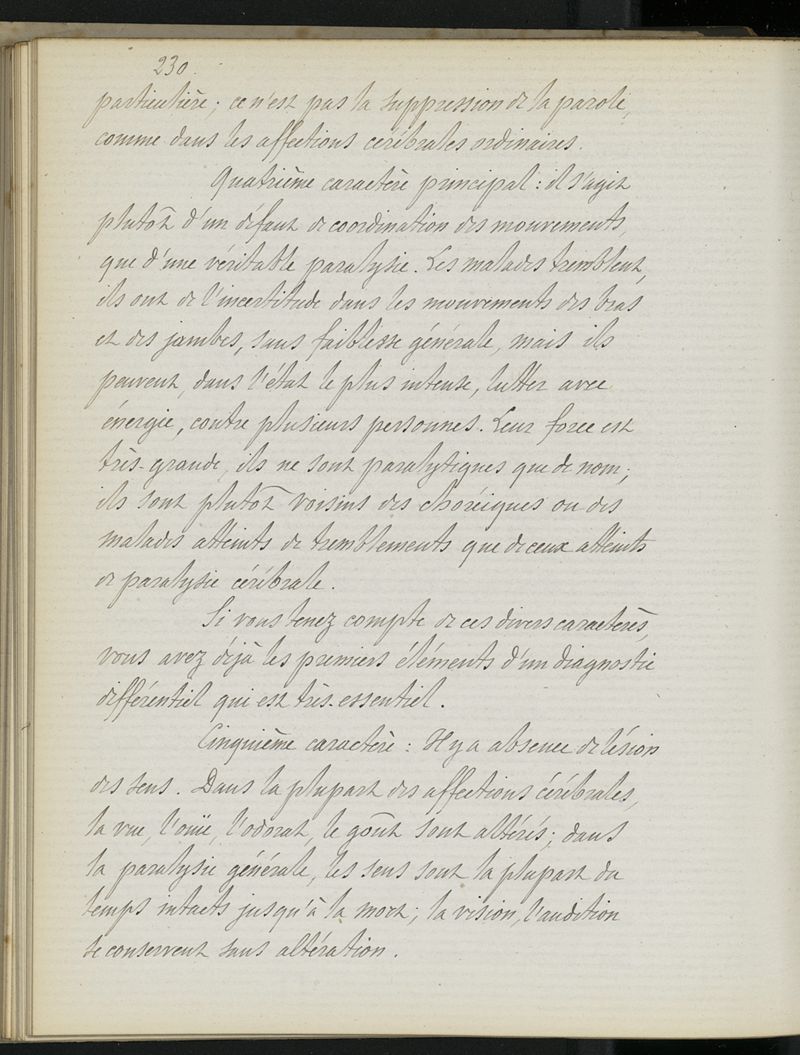 230.
particulière; ce n'est pas la suppression de la parole,
comme dans les affections cérébrales ordinaires.
Quatrième caractère principal : il s'agit
plutôt d'un défaut de coordination des mouvements,
que d'une véritable paralysie. Les malades tremblent,
ils ont de l'incertitude dans les mouvements des bras
et des jambes, sans faiblesse générale, mais ils
peuvent, dans l'état le plus intense, lutter avec
énergie, contre plusieurs personnes. Leur force est
très-grande, ils ne sont paralytiques que de nom;
ils sont plutôt voisins des choréiques ou des
malades atteints de tremblements que de ceux atteints
de paralysie cérébrale.
Si vous tenez compte de ces divers caractères,
vous avez déjà les premiers éléments d'un diagnostic
différentiel qui est très-essentiel.
Cinquième caractère : Il y a absence de lésion
des sens. Dans la plupart des affections cérébrales,
la vue, l'ouïe, l'odorat, le goût sont altérés; dans
la paralysie générale, les sens sont la plupart du
temps intacts jusqu'à la mort; la vision, l'audition
se conservent sans altération.